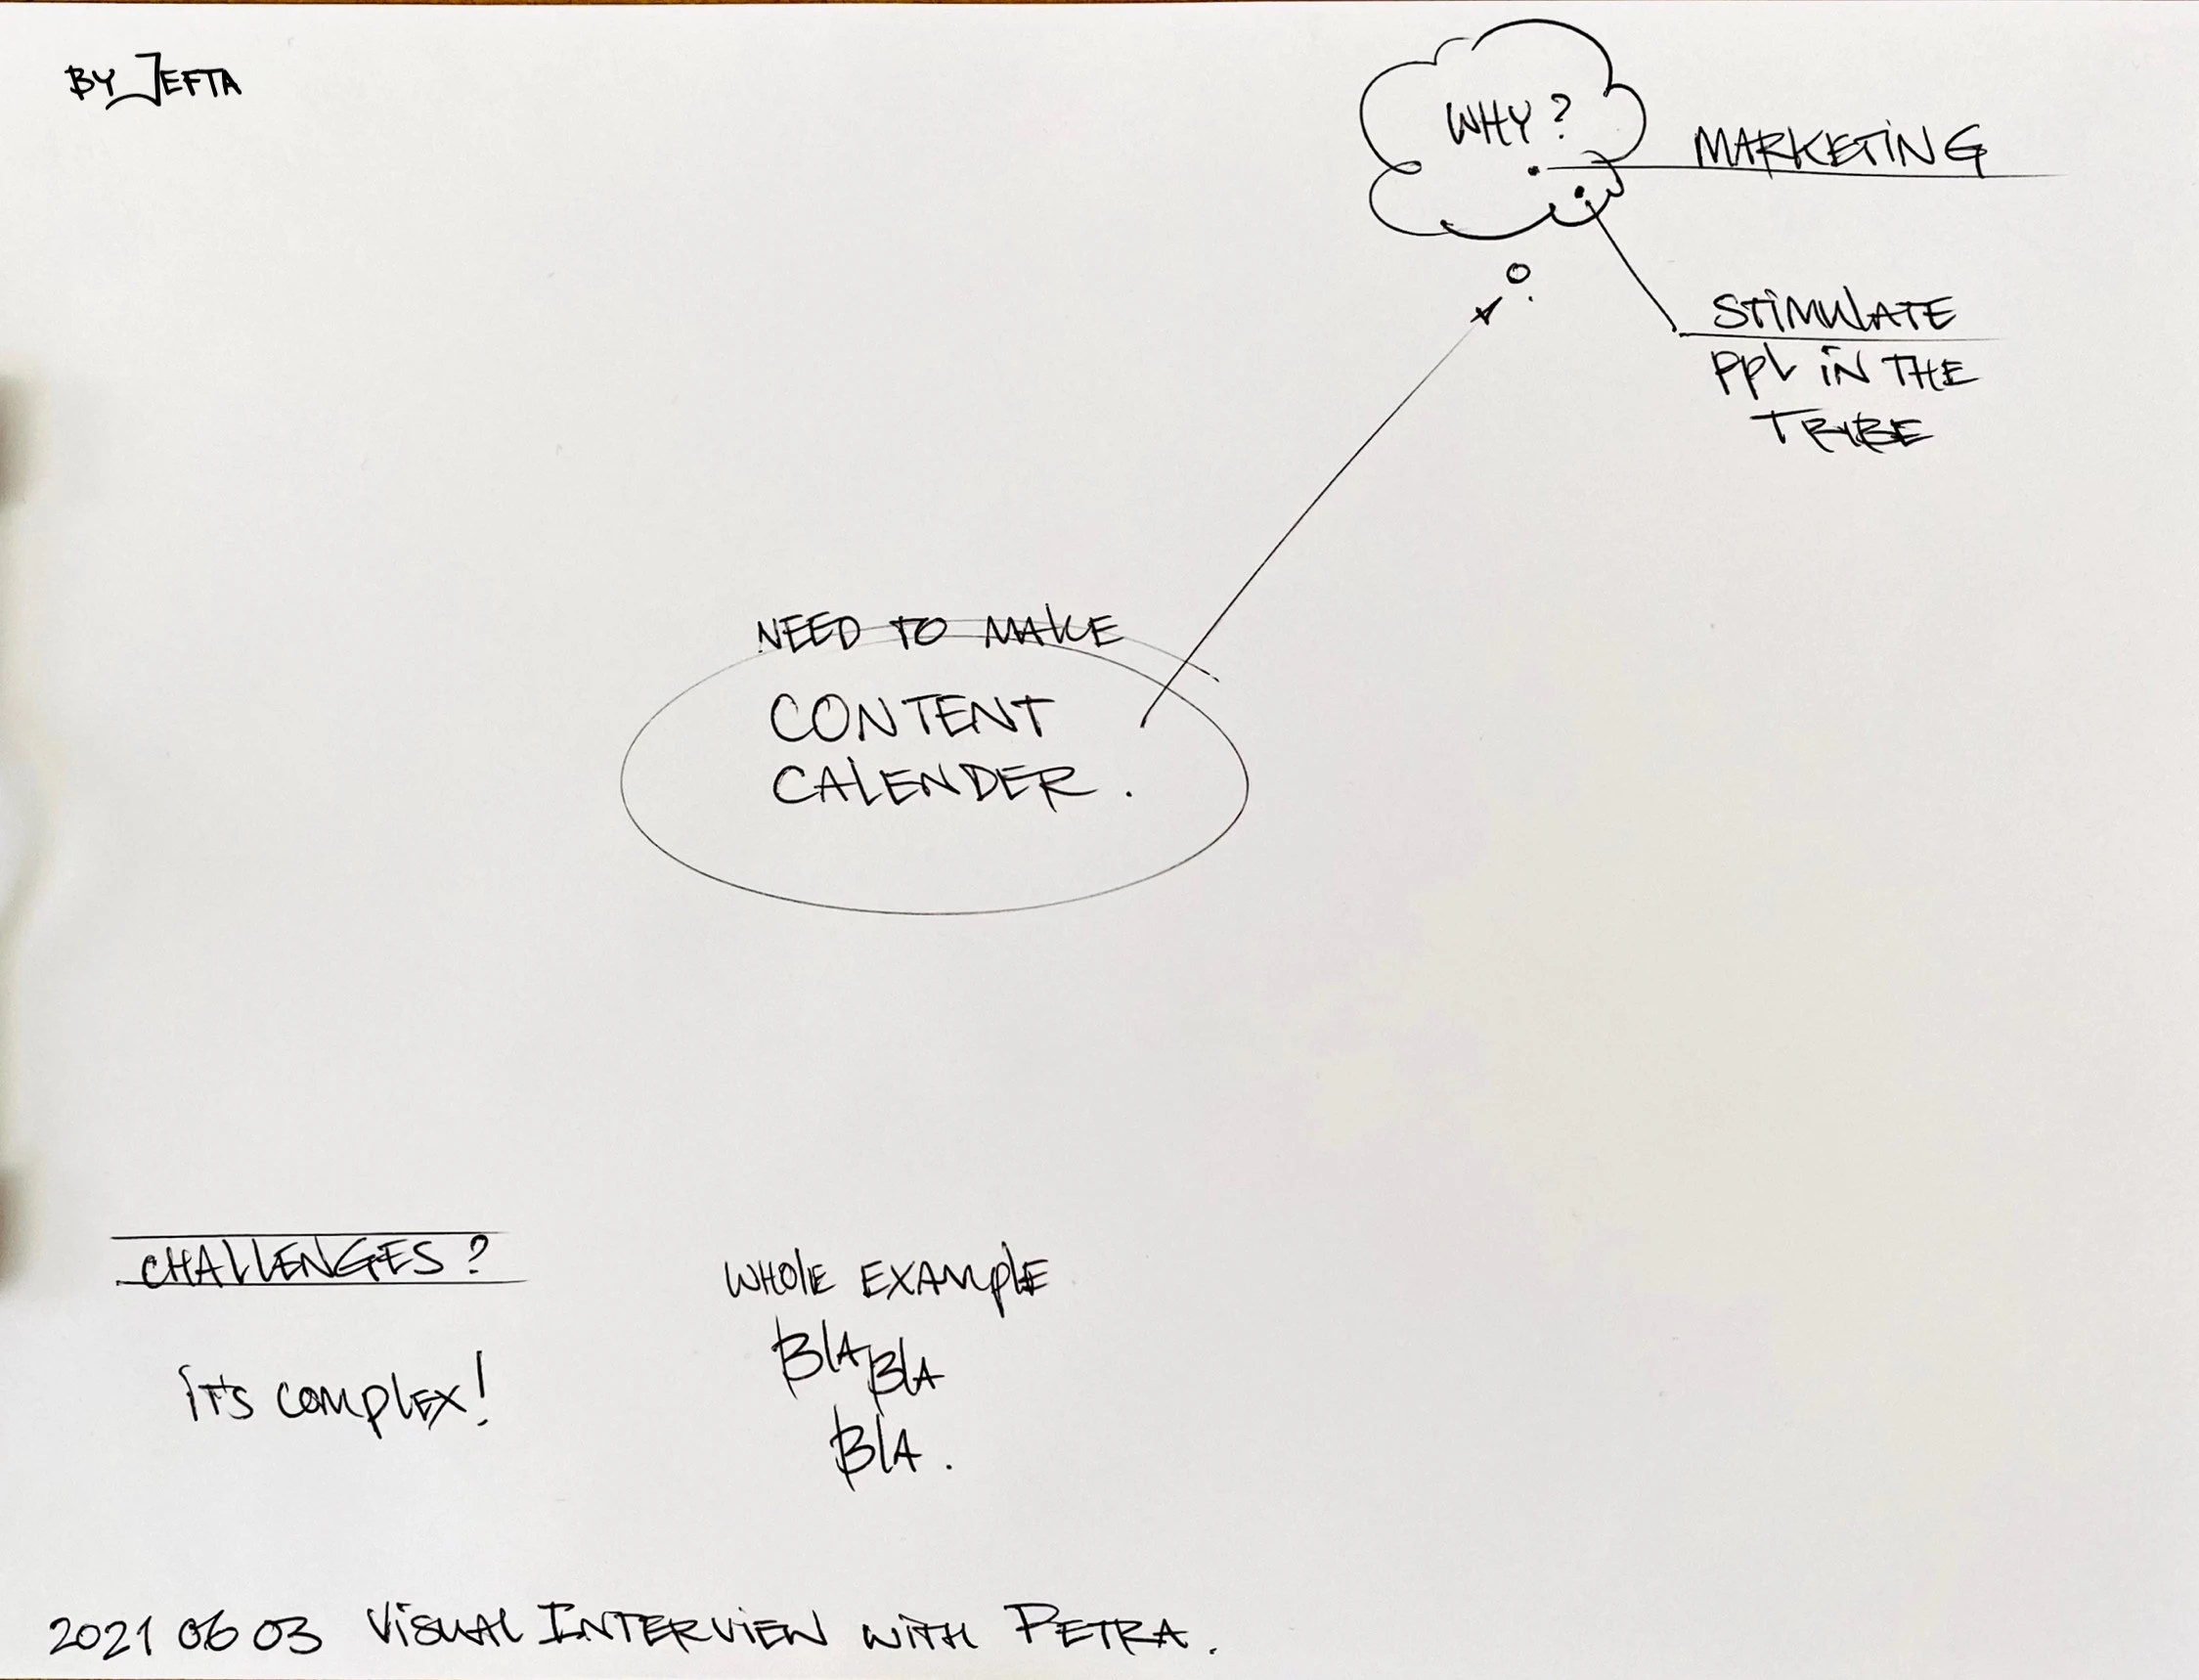 BY JEFTA
WHY?
MARKETING
STIMULATE
PPL IN THE
TRIBE
NEED TO MAKE
CONTENT
CALENDER.
CHALLENGES?
IT'S COMPLEX!
WHOLE EXAMPLE
BLA BLA
BLA.
2021 06 03 VISUAL INTERVIEW WITH PETRA.